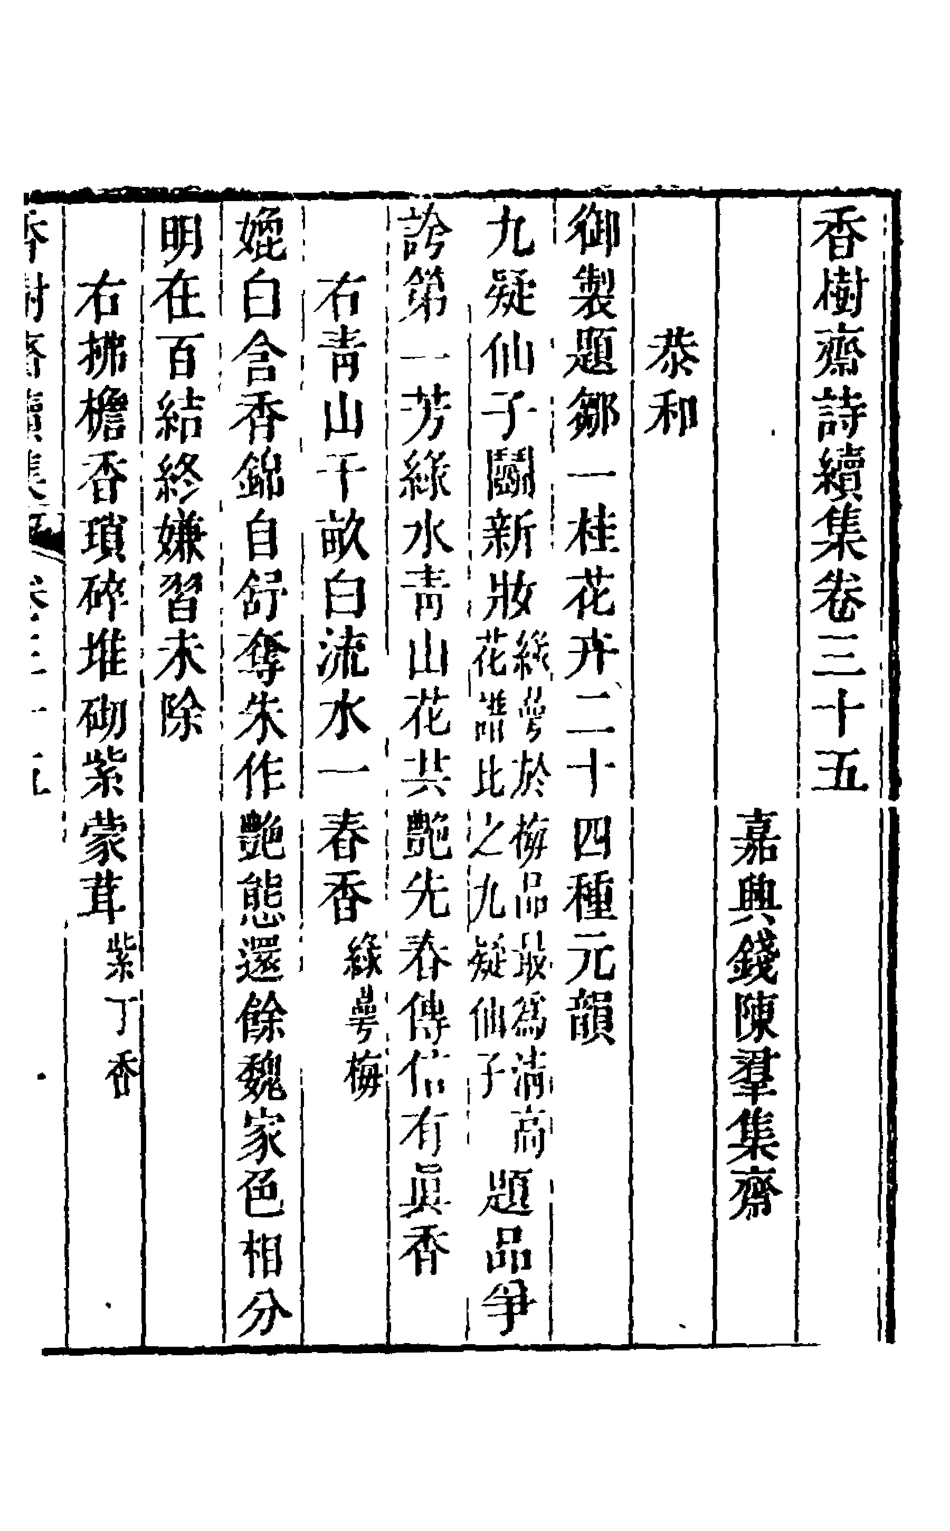 香樹齋詩續集卷三十五
嘉興錢陳羣集齋
恭和
御製題鄒一桂花卉二十四種元韻
九疑仙子鬭新妝綠萼於梅品最爲淸高花譜比之九疑仙子題品爭
誇第一芳綠水靑山花共艶先春傳信有眞香
右靑山千畝白流水一春香綠萼梅
嬔白含香錦自舒奪朱作艶態還餘魏家色相分
明在百結終嫌習未除
右拂檐香瑣碎堆砌紫蒙茸紫丁香
香樹齋續集 卷三十五